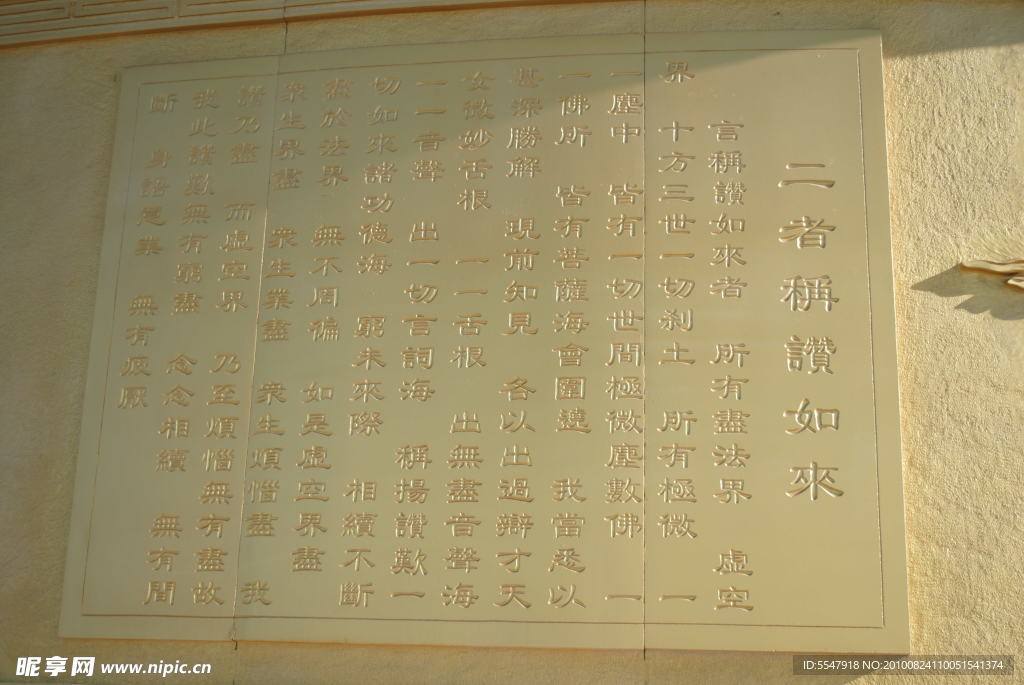 二者稱讚如來
言稱讚如來者 所有盡法界 虛空
界 十方三世一切刹土 所有極微 一
一塵中 皆有一切世間極微塵數佛 一
一佛所 皆有菩薩海會圍遶 我當悉以
甚深勝解 現前知見 各以出過辯才天
女微妙舌根 一一舌根 出無盡音聲海
一一音聲 出一切言詞海 稱揚讚歎一
切如來諸功德海 窮未來際 相續不斷
盡於法界 無不周徧 如是虛空界盡
衆生界盡 衆生業盡 衆生煩惱盡 我
讚乃盡 而虛空界 乃至煩惱無有盡故
我此讚歎無有窮盡 念念相續 無有間
斷 身語意業 無有疲厭
昵享网 www.nipic.cn
ID:5547918 NO:20100824110051541374